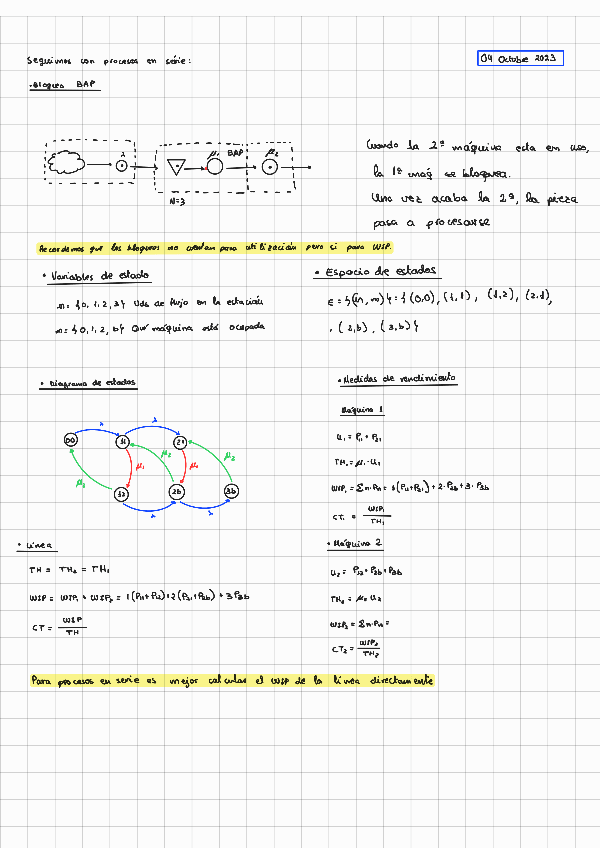 Seguimos con procesos en serie:
04 Octubre 2023
·Bloqueo BAP
λ
μ₁ BAP
μ₂
N=3
Cuando la 2ª máquina esta en uso,
la 1ª maq se bloquea.
Una vez acaba la 2ª, la pieza
pasa a procesarse
Recordemos que los bloqueos no cuentan para utilización pero si para WIP.
· Variables de estado
n = {0, 1, 2, 3} Uds de flujo en la estación
m = {0, 1, 2, b} Qué máquina está ocupada
· Espacio de estados
ε = {(n, m)} = {(0,0), (1,1), (1,2), (2,1),
, (2,b), (3,b)}
· Diagrama de estados
λ λ
00 11 21
μ₂ μ₁ μ₂ μ₁ μ₂
12 2b 3b
λ λ
· Medidas de rendimiento
Máquina 1
u₁ = P₁₁ + P₂₁
TH₁ = μ₁ · u₁
CT₁ = WIP₁ / TH₁
· Línea
TH = TH₂ = TH₁
WIP = WIP₁ + WIP₂ = 1(P₁₁+P₁₂)+2(P₂₁+P₂b) + 3P₃b
CT = WIP / TH
· Máquina 2
u₂ = P₁₂ + P₂b + P₃b
TH₂ = μ₂ · u₂
WIP₂ = Σn·Pₙ =
CT₂ = WIP₂ / TH₂
Para procesos en serie es mejor calcular el WIP de la línea directamente